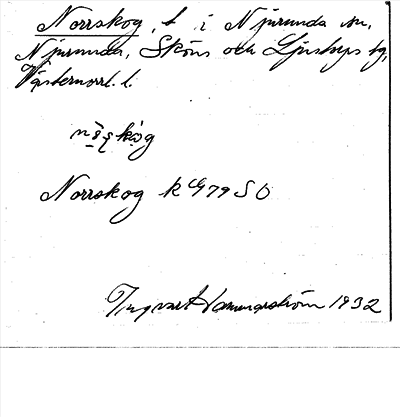 Norrskog, t. i Njurunda sn,
Njurunda, Sköns och Ljustorps tg,
Västernorrl. l.
Norrskog k G 79 SO
Ingvar Hammarström 1932